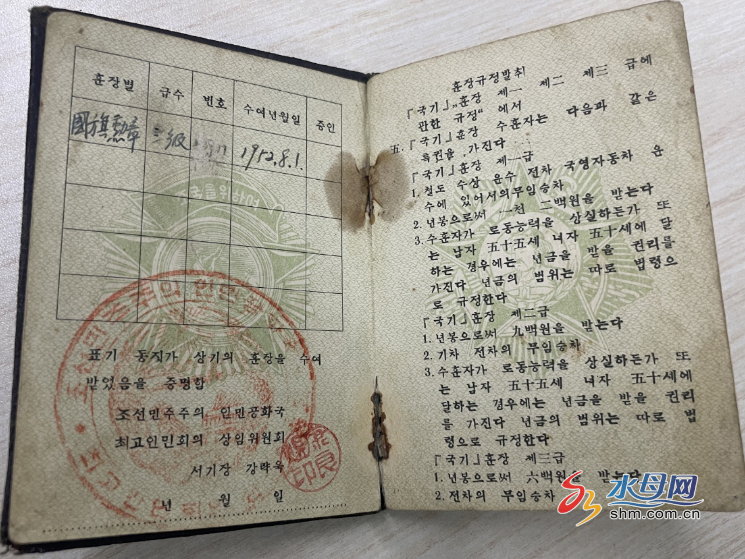 훈장별 급수 번호 수여년월일 증인
國旗勳章 三級 1952.8.1.
표기 동지가 상기의 훈장을 수여
받었음을 증명함
조선민주주의 인민공화국
최고인민회의 상임위원회
서기장 강량욱
년 월 일
훈장규정발취
『국기』훈장 제一 제二 제三 급에
관한 규정"에서
五.『국기』훈장 수훈자는 다음과 같은
특권을 가진다
『국기』훈장 제一급
1.철도 수상 운수 전차 국영자동차 운
수에 있어서의 무임승차
2.년봉으로써 一천 二백원을 받는다
3.수훈자가 로동능력을 상실하든가 또
는 남자 五十五세 녀자 五十세에 달
하는 경우에는 년금을 받을 권리를
가진다 년금의 범위는 따로 법령으
로 규정한다
『국기』훈장 제二급
1.년봉으로써 九백원을 받는다
2.기차 전차의 무임승차
3.수훈자가 로동능력을 상실하든가 또
는 남자 五十五세 녀자 五十세에
달하는 경우에는 년금을 받을 권리
를 가진다 년금의 범위는 따로 법
령으로 규정한다
『국기』훈장 제三급
1.년봉으로써 六백원을 받는다
2.전차의 무임승차
水母网
shm.com.cn